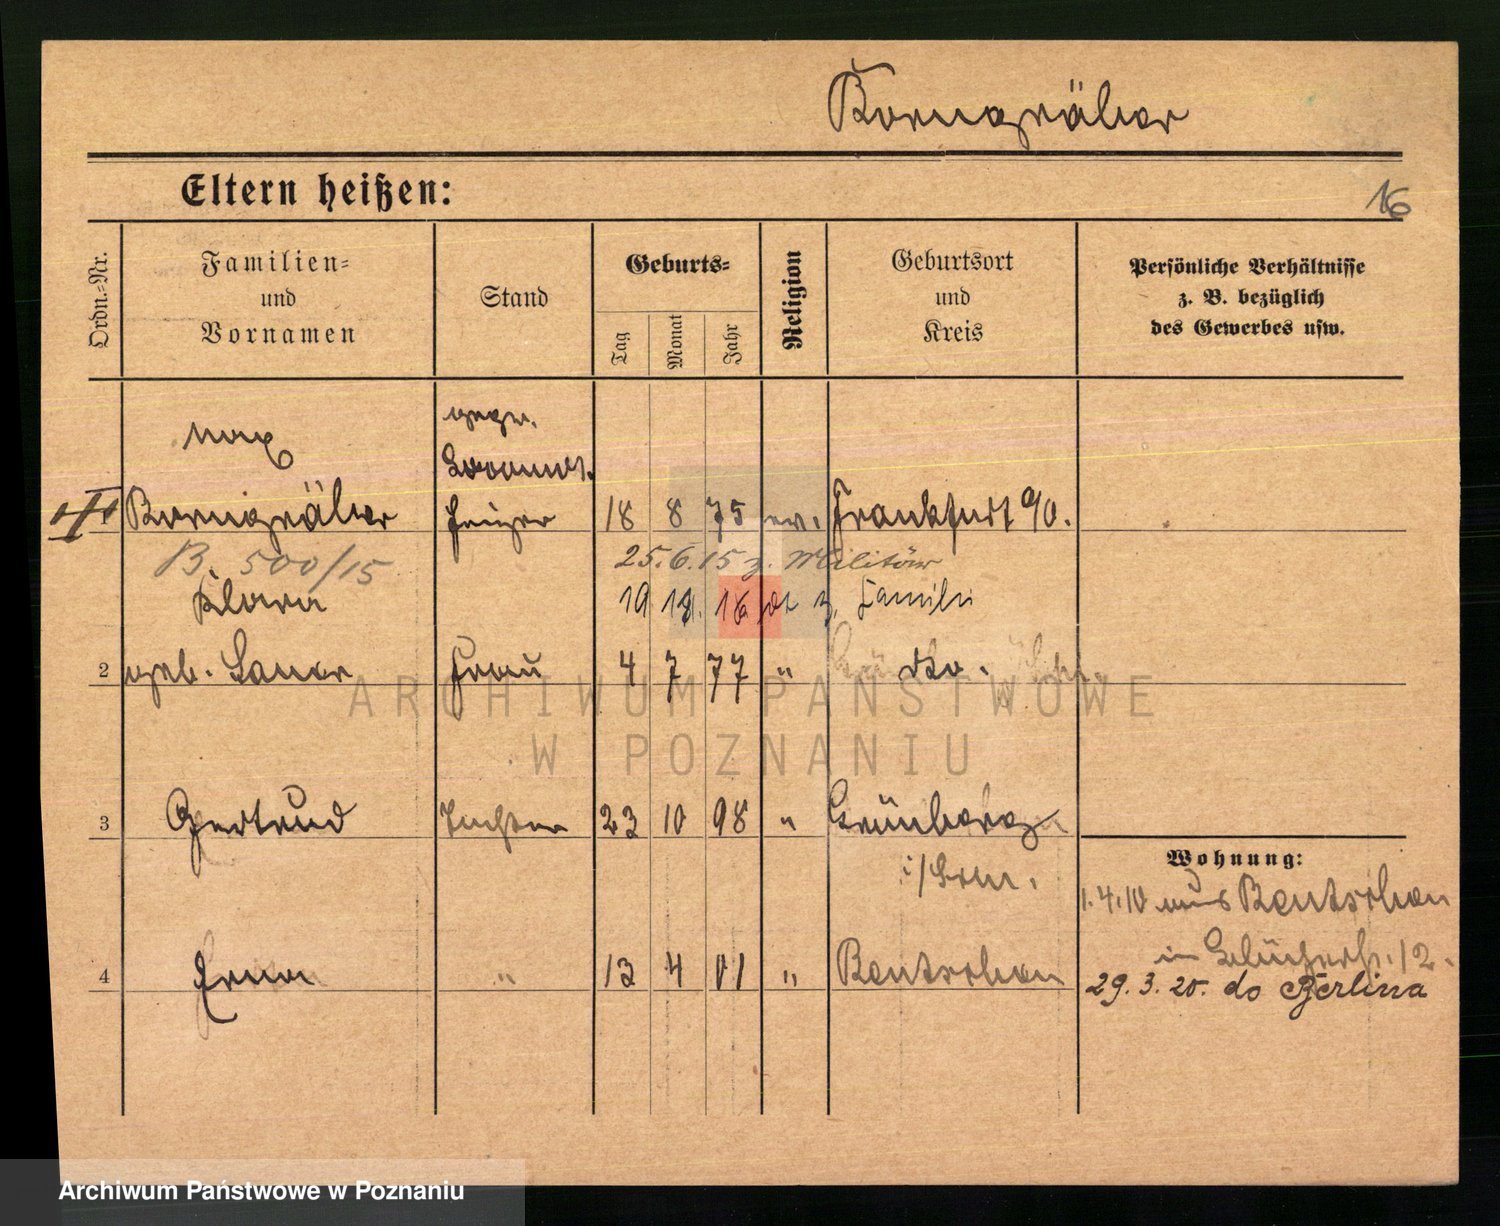 Korngräber
Eltern heißen:
16
Ordn.-Nr.
Familien-
und
Vornamen
Stand
Geburts-
Tag
Monat
Jahr
Religion
Geburtsort
und
Kreis
Persönliche Verhältnisse
z. B. bezüglich
des Gewerbes usw.
Max
gepr.
Locomot.
1 Korngräber Heizer 18 8 75 ev. Frankfurt a/O.
B. 500/15 25.6.15 z. Militär
Klara 19 z. Famili
2 geb. Lauer Frau 4 7 77 " dto.
ARCHIWUM PAŃSTWOWE
W POZNANIU
3 Gertrud Tochter 23 10 98 " Grünberg
Wohnung:
1.4.10 aus Bentschen
in 12.
4 Erna " 13 4 01 " Bentschen
29. 3. 20. do Berlina
Archiwum Państwowe w Poznaniu